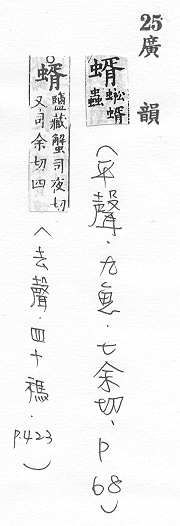 25 廣韻
蝑 蝍蝑蟲
(平聲.九魚.七余切.P68)
蝑 鹽藏蟹司夜切又司余切四
(去聲.四十禡.P.423)